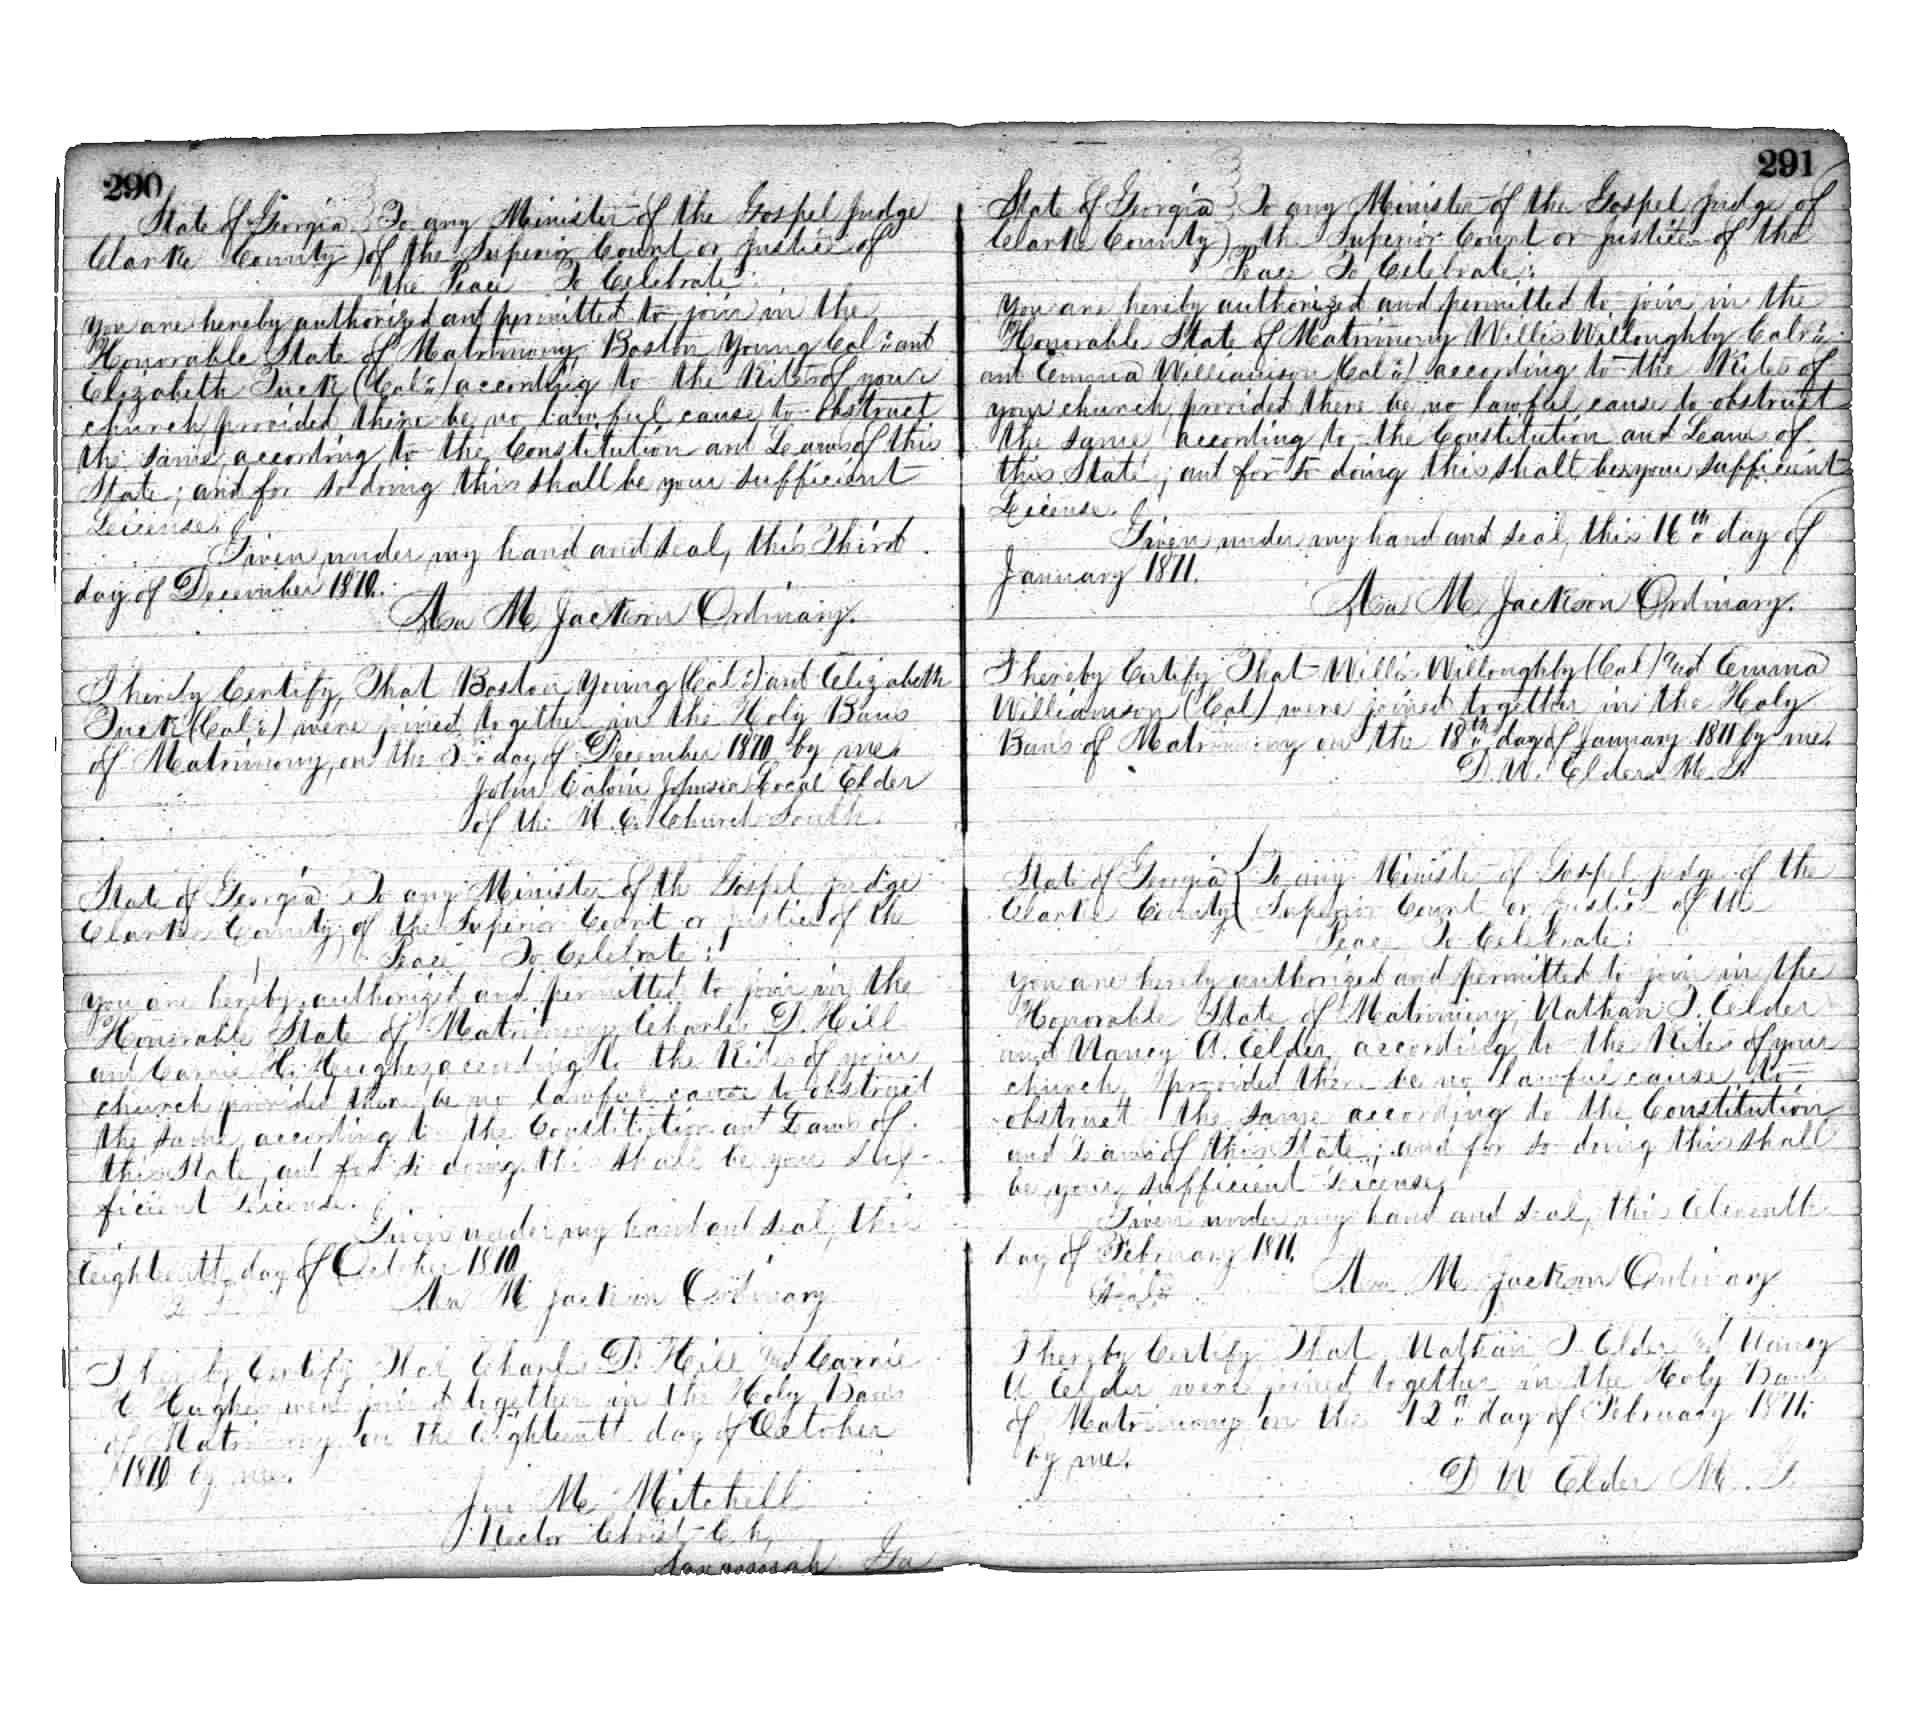 290
State of Georgia } To any Minister of the Gospel Judge
Clarke County } of the Superior Court or Justice of
the Peace To Celebrate:
You are hereby authorized and permitted to join in the
Honorable State of Matrimony Boston Young Col'd and
Elizabeth Tuck (Col'd) according to the Rites of your
church provided there be no lawful cause to obstruct
the same, according to the Constitution and Laws of this
State; and for so doing this shall be your sufficient
License.
Given under my hand and seal, this Third
day of December 1870.
Asa M Jackson Ordinary.
I hereby Certify, That Boston Young (Col'd) and Elizabeth
Tuck (Col'd) were joined together in the Holy Bans
of Matrimony, on the day of December 1870 by me.
John Calvin Johnson Local Elder
of the M. E. Church South.
State of Georgia To any Minister of th Gospel judge
Clarke County of the Superior Court or justice of the
Peace To Celebrate:
You are hereby authorized and permitted to join in the
Honorable State of Matrimony Charles D. Hill
and Carrie H. Hughes, according to the Rites of your
church provided there be no lawful cause to obstruct
the same, according to the Constitution and Laws of
this State, and for so doing this shall be your suf-
ficient License.
Given under my hand and seal, this
Eighteenth day of October 1870
Asa M Jackson Ordinary
I hereby Certify That Charles D. Hill and Carrie
H Hughes were joined together in the Holy Bans
of Matrimony on the Eighteenth day of October
1870 by me.
Jno M Mitchell
Rector Christ Ch,
Savannah Ga
291
State of Georgia } To any Minister of the Gospel Judge of
Clarke County } the Superior Court or justice of the
Peace To Celebrate:
You are hereby authorized and permitted to join in the
Honorable State of Matrimony Willis Willoughby Col'd
and Emma Williamson (Col'd) according to the Rites of
your church, provided there be no lawful cause to obstruct
the same according to the Constitution and Laws of
this State; and for so doing this shall be your sufficient
License.
Given under my hand and seal, this 16th day of
January 1871.
Asa M Jackson Ordinary.
I hereby Certify That Willis Willoughby (Col) and Emma
Williamson (Col) were joined together in the Holy
Bans of Matrimony on the 18th day of January 1871 by me.
D. W. Elder M. G
State of Georgia { To any Minister of Gospel judge of the
Clarke County { Superior Court or justice of the
Peace To Celebrate:
You are hereby authorized and permitted to join in the
Honorable State of Matrimony, Nathan T. Elder
and Nancy A. Elder, according to the Rites of your
church, provided there be no lawful cause to
obstruct the same according to the Constitution
and Laws of this State; and for so doing this shall
be your sufficient License,
Given under my hand and seal, this Eleventh
day of February 1871.
Seal
Asa M Jackson Ordinary
I hereby Certify That Nathan T. Elder and Nancy
A Elder were joined together in the Holy Bans
of Matrimony on the 12th day of February 1871.
by me.
D W Elder M. G.